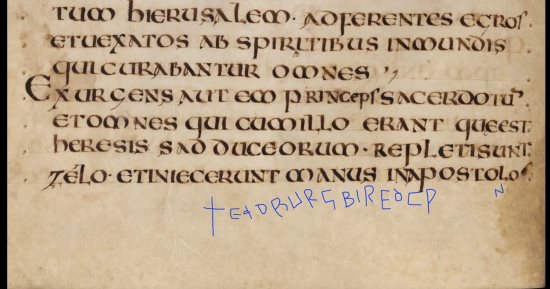 tum hierusalem · adferentes egros
etuexatos ab spiritibus inmundis
quicurabantur omnes
Exurgens autem princeps sacerdotū
etomnes quicumillo erant quęest
heresis sadduceorum · repletisunt
zélo · etiniecerunt manus inapostolos
N
+EADBURGBIREOCP